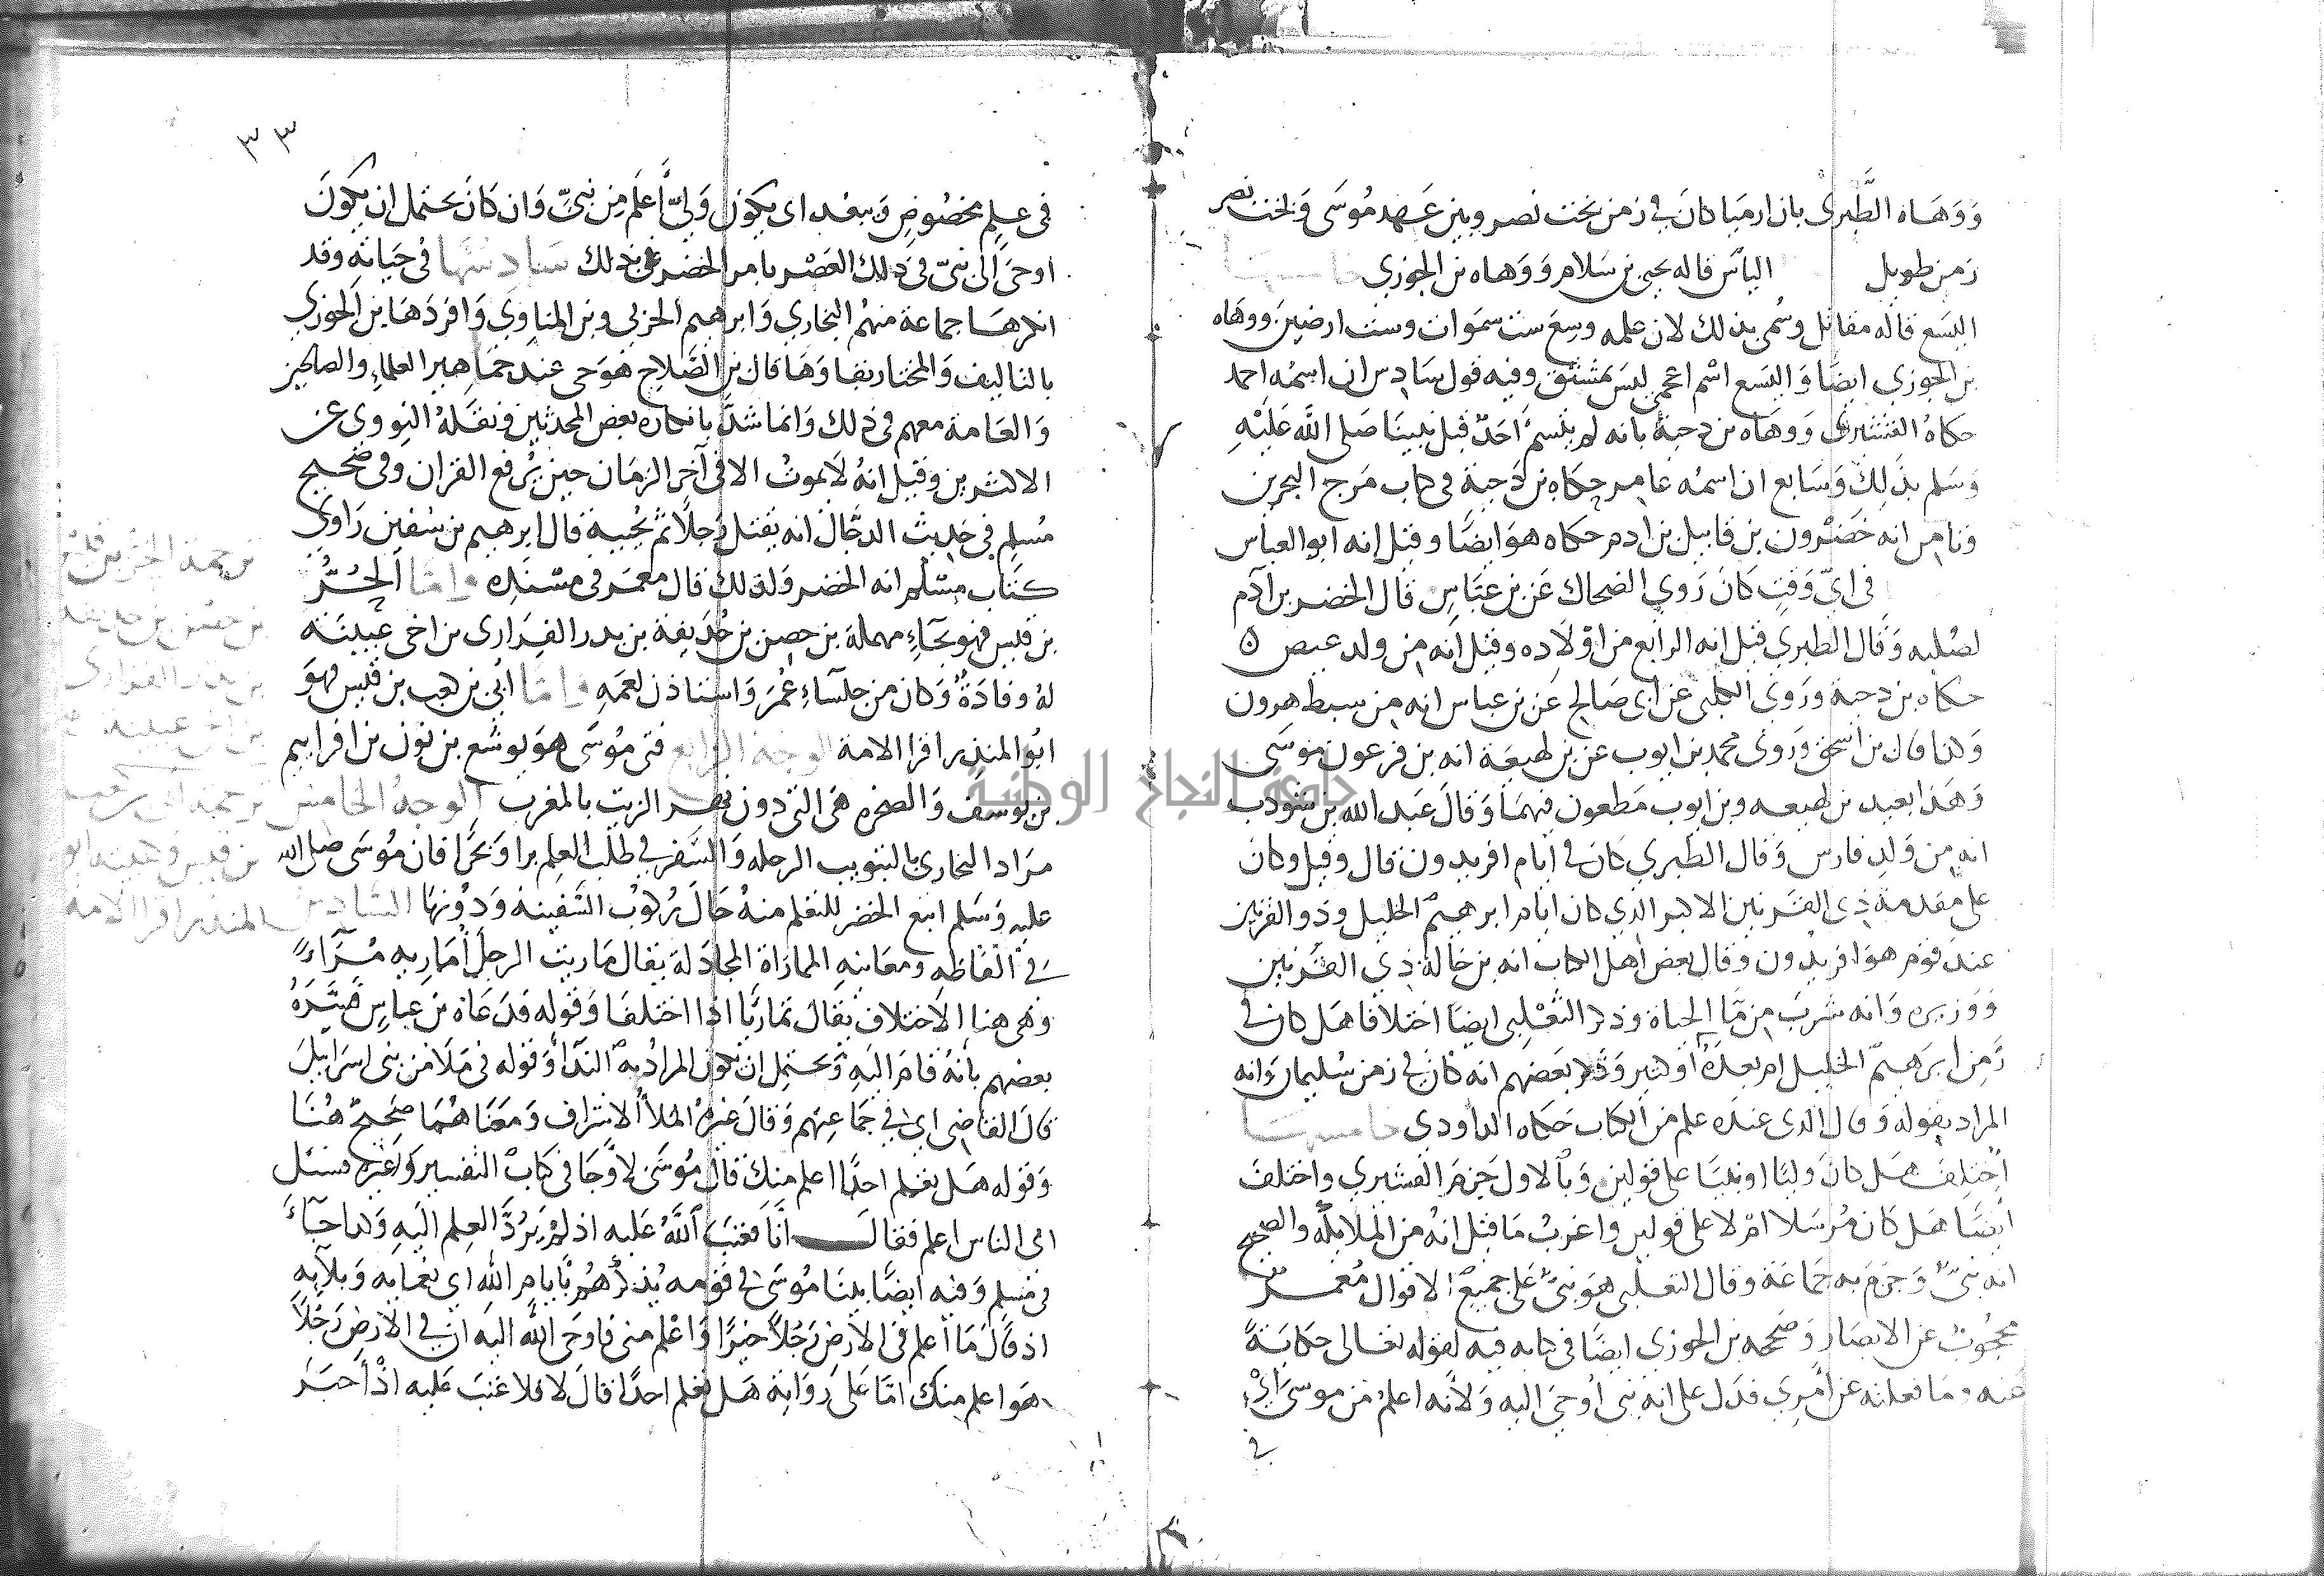 ووهاه الطبري بان ارميا كان في زمن بخت نصر وبين عهد موسى وبخت نصر
زمن طويل الياس قاله يحيى بن سلام ووهاه بن الجوزي خامسها
اليسع قاله مقاتل وسمي بذلك لان علمه وسع ست سموات وست ارضين ووهاه
بن الجوزي ايضا واليسع اسم اعجمي ليس بمشتق وفيه قول سادس ان اسمه احمد
حكاه القشيري ووهاه بن دحية بانه لم يتسم احد قبل نبينا صلى الله عليه
وسلم بذلك وسابع ان اسمه عامر حكاه بن دحية في كتاب مرج البحرين
وثامن انه خضرون بن قابيل بن ادم حكاه هو ايضا وقيل انه ابو العباس
في اي وقت كان روي الضحاك عن بن عباس قال الخضر بن آدم
لصلبه وقال الطبري قيل انه الرابع من اولاده وقيل انه من ولد عيص ه
حكاه بن دحية وروى الكلبي عن ابي صالح عن بن عباس انه من سبط هرون
وكذا قال بن اسحق وروى محمد بن ايوب عن بن لهيعة انه بن فرعون موسى
وهذا بعيد بن لهيعه وبن ايوب مطعون فيهما وقال عبد الله بن شوذب
انه من ولد فارس وقال الطبري كان في ايام افريدون قال وقيل وكان
على مقدمة ذي القرنين الاكبر الذي كان ايام ابرهيم الخليل وذو القرنين
عند قوم هو افريدون وقال بعض اهل الكتاب انه بن خالة ذي القرنين
ووزيره وانه شرب من ما الحياة وذكر الثعلبي ايضا اختلافا هل كان في
زمن ابرهيم الخليل ام بعده او كثير وذكر بعضهم انه كان في زمن سليمان وانه
المراد بقوله وقال الذي عنده علم من الكتاب حكاه الداودي خامسها
اختلف هل كان وليا او نبيا على قولين وبالاول جزم القشيري واختلف
ايضا هل كان مرسلا ام لا على قولين واغرب ما قيل انه من الملايكة والصحيح
انه نبي وجزم به جماعة وقال الثعلبي هو نبي على جميع الاقوال معمر
محجوب عن الابصار وصححه بن الجوزي ايضا في كتابه فيه لقوله تعالى حكاية
عنه وما فعلته عن امري فدل على انه نبي اوحي اليه ولانه اعلم من موسى اي
في
٣٣
في علم مخصوص ويبعد ان يكون ولي اعلم من نبي وان كان يحتمل ان يكون
اوحي الى نبي في ذلك العصر يامر الخضر بذلك سادسها في حياته وقد
انكرها جماعة منهم البخاري وابرهيم الحربي وبن المناوي وافردها بن الجوزي
بالتاليف والمختار بقاوها قال بن الصلاح هو حي عند جماهير العلماء والصالحين
والعامة معهم في ذلك وانما شذ بانكاره بعض المحدثين ونقله النووي عن
الاكثرين وقيل انه لا يموت الا في آخر الزمان حين يرفع القران وفي صحيح
مسلم في حديث الدجال انه يقتل رجلا ثم يحييه قال ابرهيم بن سفين راوي
كتاب مسلم انه الخضر وكذلك قال معمر في مسنده واما الحر
بن قيس فهو بحاء مهملة بن حصن بن حذيفة بن بدر الفزاري بن اخي عيينة
له وفادة وكان من جلساء عمر واستاذن لعمه واما ابي بن كعب بن قيس فهو
ابو المنذر اقرا الامة الوجه الرابع فتى موسى هو يوشع بن نون بن افراييم
بن يوسف والصخره هي التي دون نهر الزيت بالمغرب الوجه الخامس
مراد البخاري بالتبويب الرحله والسفر في طلب العلم برا وبحرا فان موسى صلى الله
عليه وسلم اتبع الخضر للتعلم منه حال ركوب السفينه ودونها السادس
في الفاظه ومعانيه المماراة المجادلة يقال ماريت الرجل اماريه مراء
وهي هنا الاختلاف يقال تماريا اذا اختلفا وقوله فدعاه بن عباس فسره
بعضهم بانه قام اليه ويحتمل ان يكون المراد به الندا وقوله في ملا من بني اسراييل
قال القاضي اي في جماعتهم وقال غيره الملا الاشراف ومعناهما صحيح هنا
وقوله هل تعلم احدا اعلم منك قال موسى لا وجا في كتاب التفسير وغيره فسئل
اي الناس اعلم فقال انا فعتب الله عليه اذ لم يرد العلم اليه وكذا جاء
في مسلم وفيه ايضا بينا موسى في قومه يذكرهم بايام الله اي نعمايه وبلآيه
اذ قال ما اعلم في الارض رجلا خيرا واعلم مني فاوحى الله اليه ان في الارض رجلا
هو اعلم منك اما على رواية هل تعلم احدا قال لا فلا عتب عليه اذ اخبر
ترجمة الحر بن قيس
بن اخي عيينة
ترجمة ابي بن كعب
بن قيس وكنيته ابو
المنذر اقرا الامة
جامعة النجاح الوطنية